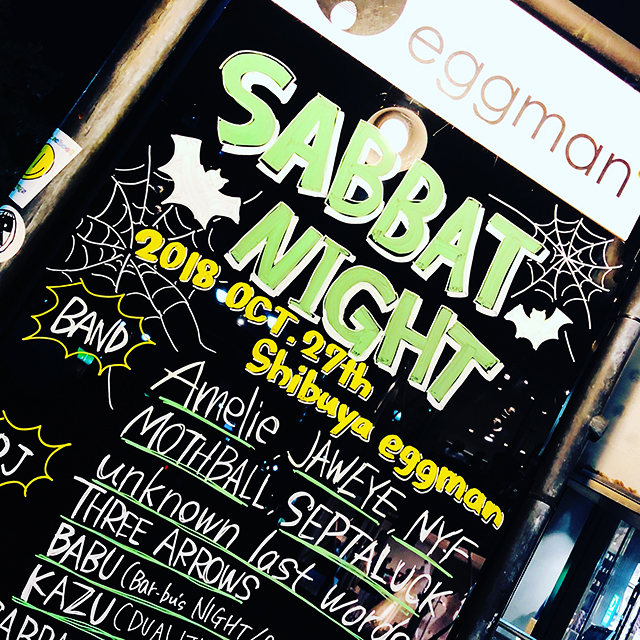 eggman
SABBAT
NIGHT
2018.OCT.27th
Shibuya eggman
BAND
Amelie JAWEYE NYF
MOTHBALL SEPTALUCK
unknown last words
THREE ARROWS
DJ
BABU (Bar-bu's NIGHT/
KAZU (